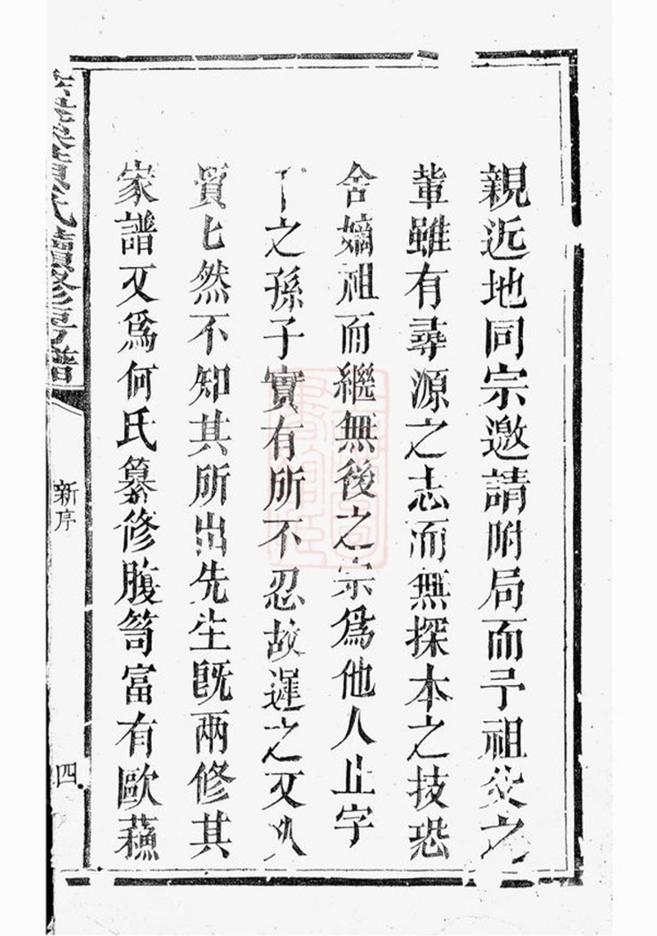 親近地同宗邀請附局而予祖父之
輩雖有尋源之志而無探本之技恐
舍嫡祖而繼無後之宗為他人止字
之孫子實有所不忍故遲之又
貿匕然不知其所出先生既兩修其
家譜又為何氏纂修腹笥富有歐蘇
氏續修
譜
新序
四